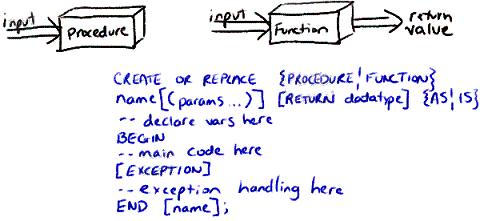 input
Procedure
input
Function
return
value
CREATE OR REPLACE {PROCEDURE¦FUNCTION}
name[(params...)] [RETURN datatype] {AS¦IS}
-- declare vars here
BEGIN
-- main code here
[EXCEPTION]
-- exception handling here
END [name];